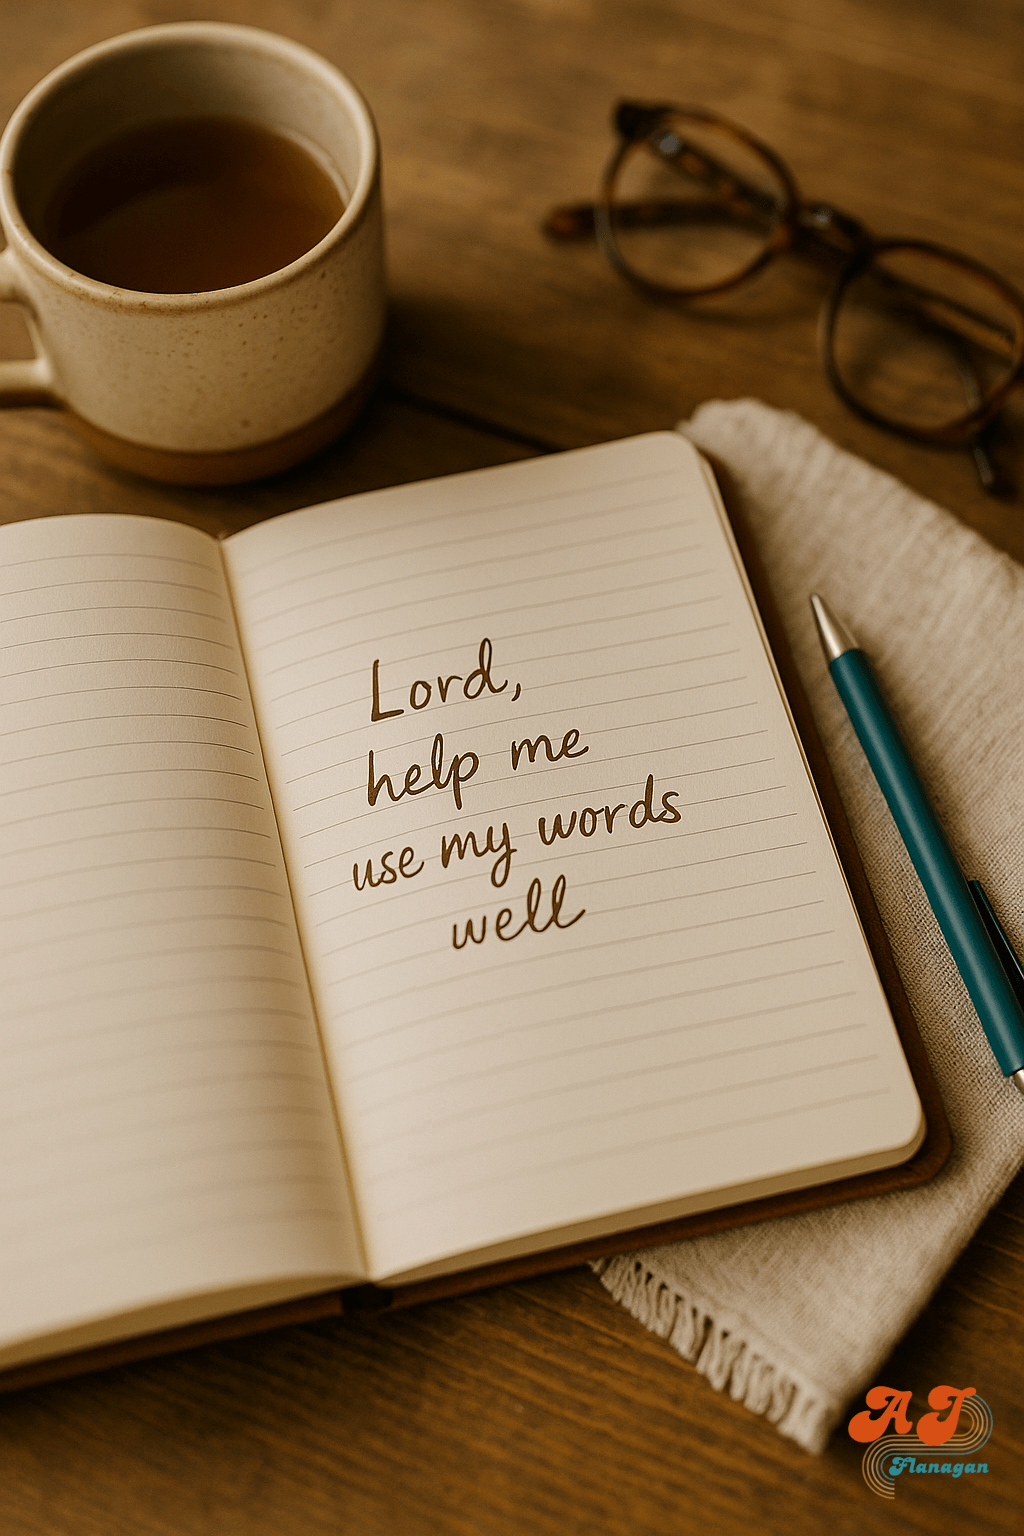 Lord,
help me
use my words
well
AJ
Flanagan